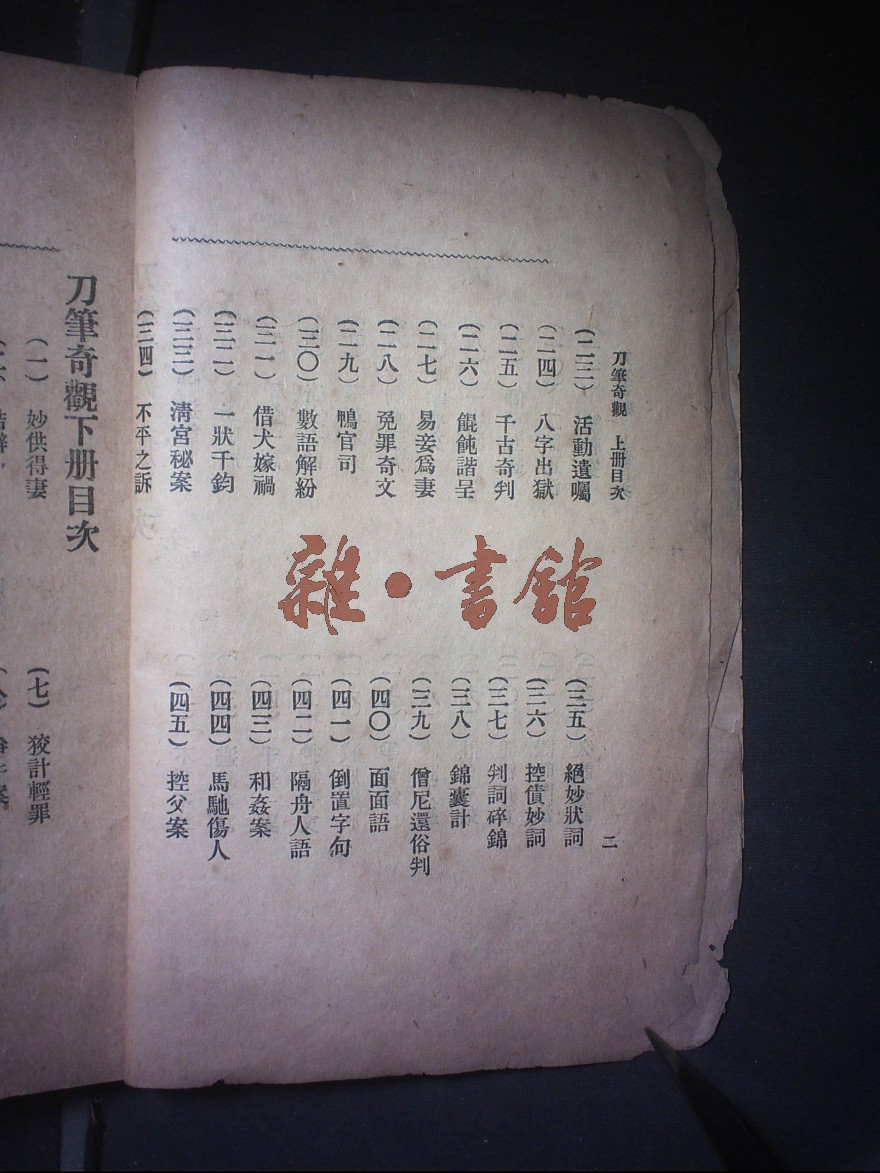 刀筆奇觀　上册目次
二
(二三)　活動遺囑
(二四)　八字出獄
(二五)　千古奇判
(二六)　餛飩諧呈
(二七)　易妾爲妻
(二八)　免罪奇文
(二九)　鴨官司
(三〇)　數語解紛
(三一)　借犬嫁禍
(三二)　一狀千鈞
(三三)　清宮秘案
(三四)　不平之訴
(三五)　絕妙狀詞
(三六)　控債妙詞
(三七)　判詞碎錦
(三八)　錦囊計
(三九)　僧尼還俗判
(四〇)　面面語
(四一)　倒置字句
(四二)　隔舟人語
(四三)　和姦案
(四四)　馬馳傷人
(四五)　控父案
刀筆奇觀下册目次
(一)　妙供得妻
(七)　狡計輕罪
雜·書館